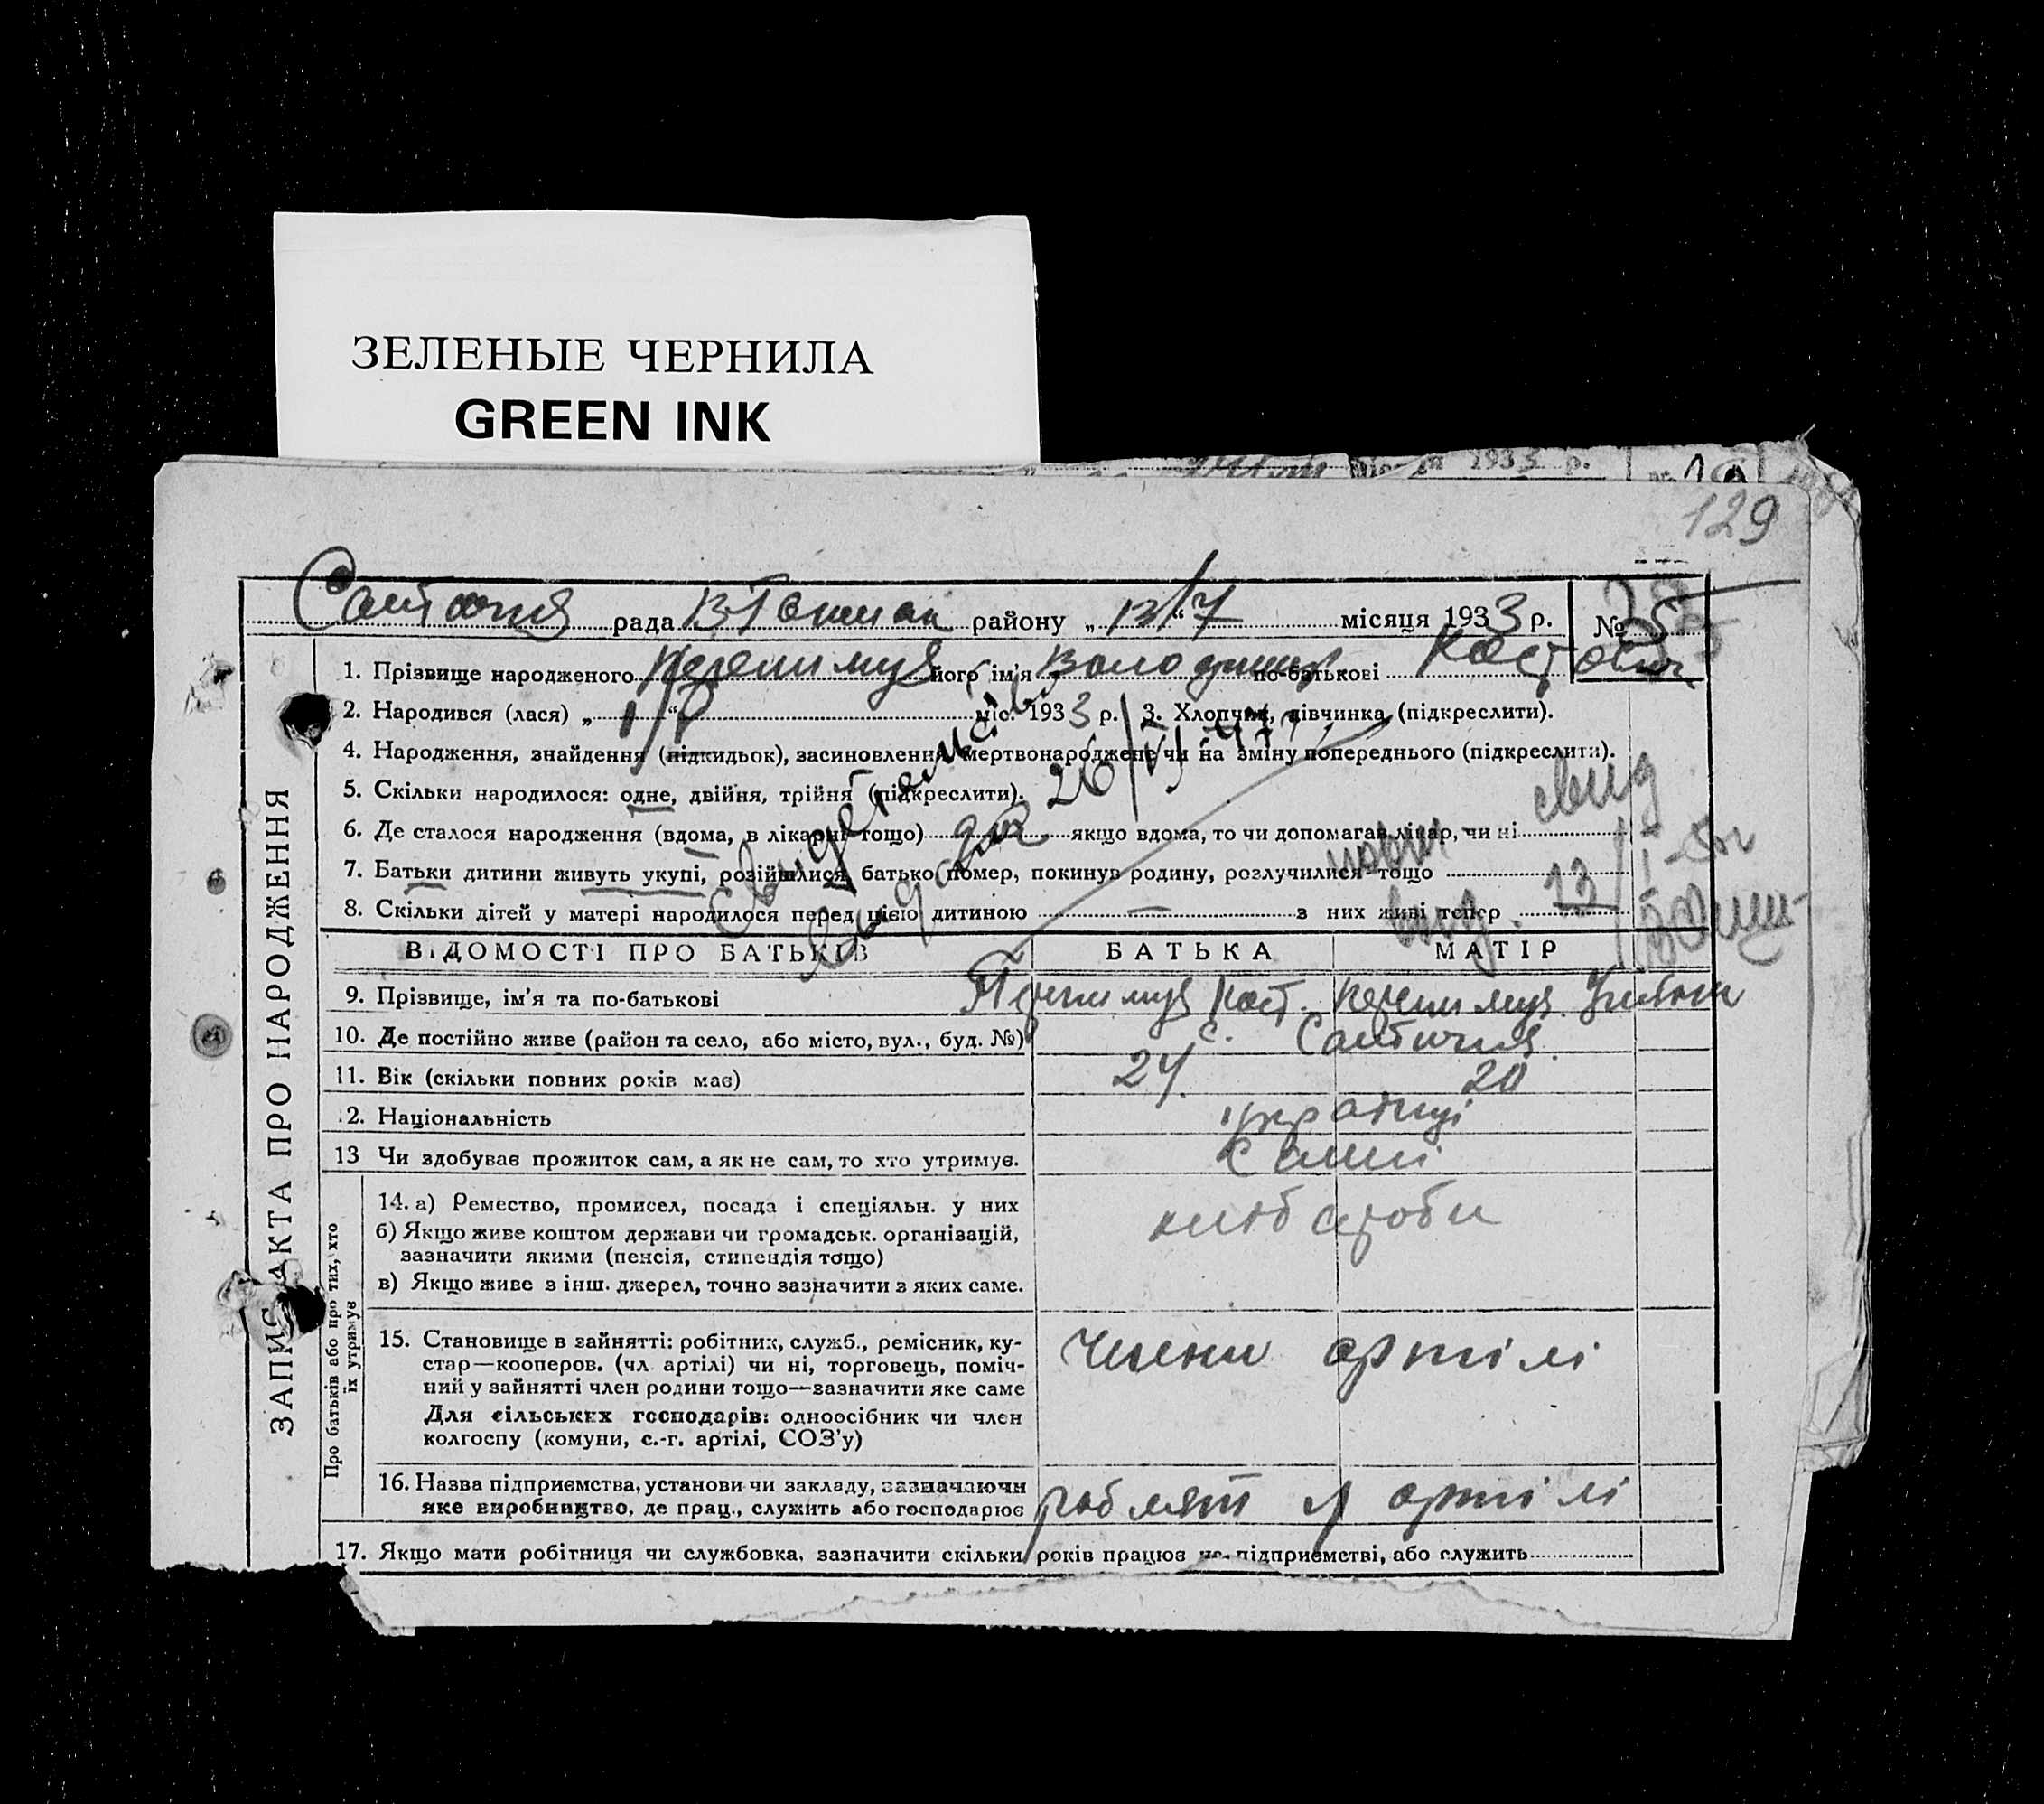 ЗЕЛЕНЫЕ ЧЕРНИЛА
GREEN INK
1933 р.
129
рада В-Токмак району „13/“7 місяця 1933 р. № 5
1. Прізвище народженого його ім'я Володимир по-батькові Кост
2. Народився (лася) „ “ міс. 1933 р. 3. Хлопчик, дівчинка (підкреслити).
4. Народження, знайдення (підкидьок), засиновлення, мертвонароджене чи на зміну попереднього (підкреслити).
5. Скільки народилося: одне, двійня, трійня (підкреслити).
6. Де сталося народження (вдома, в лікарні тощо) якщо вдома, то чи допомагав лікар, чи ні
7. Батьки дитини живуть укупі, розійшлися, батько помер, покинув родину, розлучилися тощо
8. Скільки дітей у матері народилося перед цією дитиною — з них живі тепер
ВІДОМОСТІ ПРО БАТЬКІВ БАТЬКА МАТІР
9. Прізвище, ім'я та по-батькові Кост.
10. Де постійно живе (район та село, або місто, вул., буд. №) с.
11. Вік (скільки повних років має) 24 20
12. Національність українці
13 Чи здобуває прожиток сам, а як не сам, то хто утримує. самі
14. а) Ремество, промисел, посада і спеціяльн. у них хлібороби
б) Якщо живе коштом держави чи громадськ. організацій,
зазначити якими (пенсія, стипендія тощо)
в) Якщо живе з інш. джерел, точно зазначити з яких саме.
15. Становище в зайнятті: робітник, служб., ремісник, ку-
стар—кооперов. (чл. артілі) чи ні, торговець, поміч-
ний у зайнятті член родини тощо—зазначити яке саме
Для сільських господарів: одноосібник чи член
колгоспу (комуни, с.-г. артілі, СОЗ'у)
члени артілі
16. Назва підприємства, установи чи закладу, зазначаючи
яке виробництво, де прац., служить або господарює
роблят у артілі
17. Якщо мати робітниця чи службовка, зазначити скільки років працює на підприємстві, або служить
ЗАПИС АКТА ПРО НАРОДЖЕННЯ
Про батьків або про тих, хто
їх утримує
Свидетельсів
видано 26/VI 47
свид